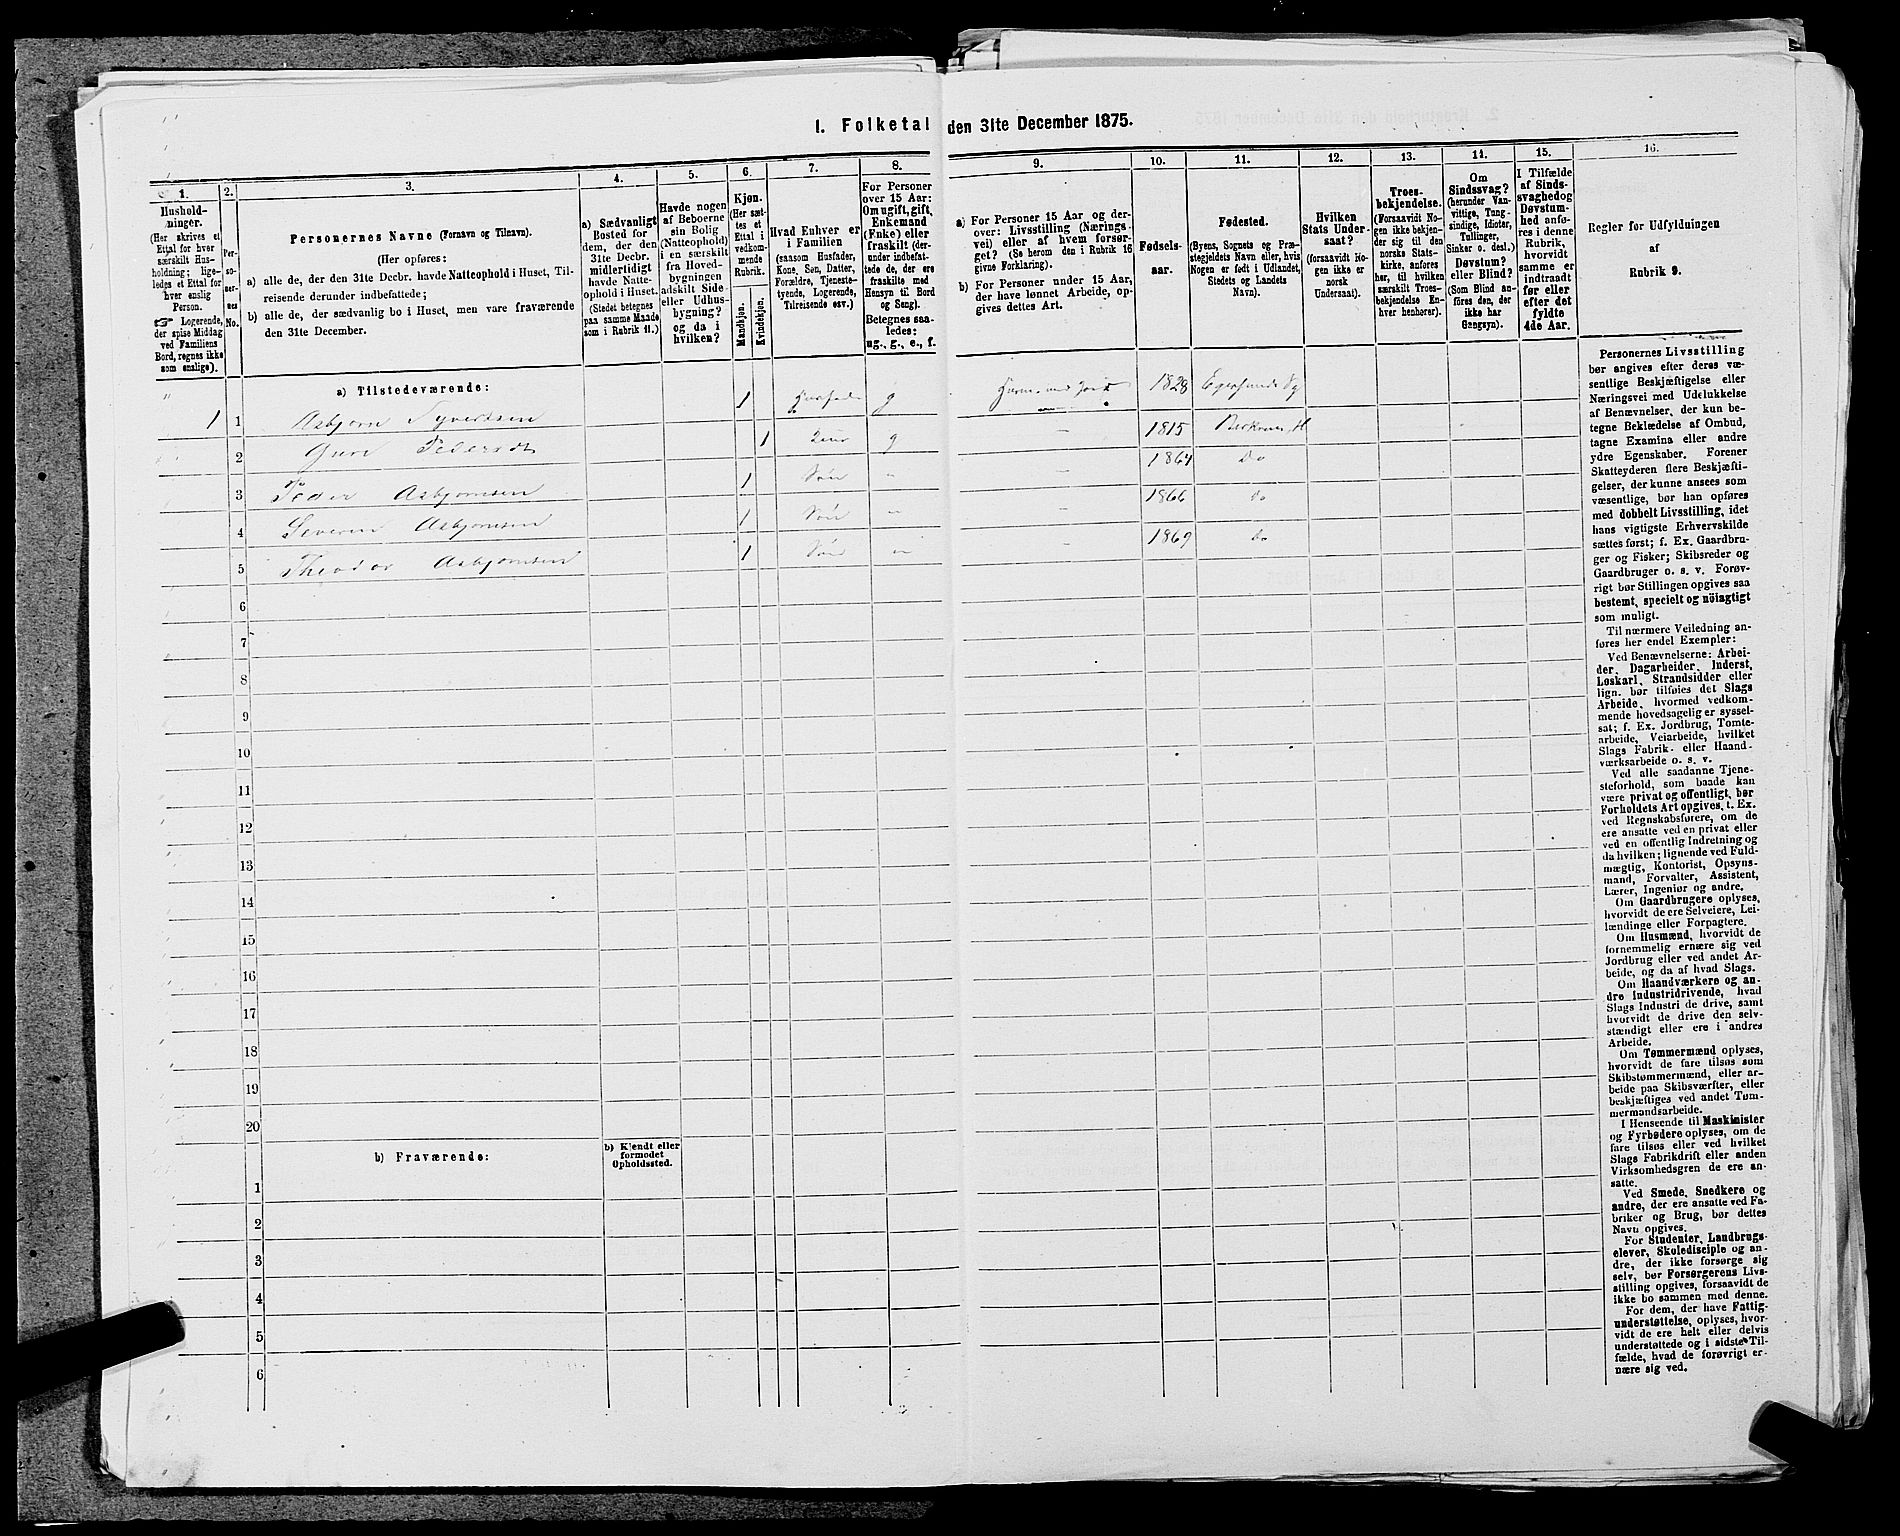 I. Folketal den 31te December 1875.
1. 2. 3. 4. 5. 6. 7. 8. 9. 10. 11. 12. 13. 14. 15. 16.
Hushold-
ninger.
(Her skrives et
Ettal for hver
særskilt Hus-
holdning; lige-
ledes et Ettal for
hver enslig
Person.
☞ Logerende,
der spise Middag
ved Familiens
Bord, regnes ikke
som enslige).
Per-
so-
ner-
nes
No.
Personernes Navne (Fornavn og Tilnavn).
(Her opføres:
a) alle de, der den 31te Decbr. havde Natteophold i Huset, Til-
reisende derunder indbefattede;
b) alle de, der sædvanlig bo i Huset, men vare fraværende
den 31te December.
a) Sædvanligt
Bosted for
dem, der den
31te Decbr.
midlertidigt
havde Natte-
ophold i Huset.
(Stedet betegnes
paa samme Maade
som i Rubrik 11.)
Havde nogen
af Beboerne
sin Bolig
(Natteophold)
i en særskilt
fra Hoved-
bygningen
adskilt Side-
eller Udhus-
bygning?
og da i
hvilken?
Kjøn.
(Her sæt-
tes et
Ettal i
vedkom-
mende
Rubrik.
Mandkjøn.
Kvindekjøn.
Hvad Enhver er
i Familien
(saasom Husfader,
Kone, Søn, Datter,
Forældre, Tjeneste-
tyende, Logerende,
Tilreisende osv.)
For Personer
over 15 Aar:
Om ugift, gift,
Enkemand
(Enke) eller
fraskilt (der-
under indbefat-
tede de, der ere
fraskilte med
Hensyn til Bord
og Seng).
Betegnes saa-
ledes:
ug., g., e., f.
a) For Personer 15 Aar og der-
over: Livsstilling (Nærings-
vei) eller af hvem forsør-
get? (Se herom den i Rubrik 16
givne Forklaring).
b) For Personer under 15 Aar,
der have lønnet Arbeide, op-
gives dettes Art.
Fødsels-
aar.
Fødested.
(Byens, Sognets og Præ-
stegjeldets Navn eller, hvis
Nogen er født i Udlandet,
Stedets og Landets
Navn).
Hvilken
Stats Under-
saat?
(forsaavidt No-
gen ikke er
norsk
Undersaat).
Troes-
bekjendelse.
(Forsaavidt No-
gen ikke bekjen-
der sig til den
norske Stats-
kirke, anføres
her, til hvilken
særskilt Troes-
bekjendelse En-
hver henhører).
Om
Sindssvag?
(herunder Van-
vittige, Tung-
sindige, Idioter,
Tullinger,
Sinker o. desl.)
Døvstum?
eller Blind?
(Som Blind an-
føres den, der
ikke har
Gangsyn).
I Tilfælde
af Sinds-
svaghedog
Døvstum-
hed anfø-
res i denne
Rubrik,
hvorvidt
samme er
indtraadt
før eller
efter det
fyldte
4de Aar.
Regler for Udfyldningen
af
Rubrik 9.
a) Tilstedeværende:
1 1 Asbjørn Syvertsen 1 g 1828 Egersunds
2 Guri Pedersdt 1 g 1815
3 Peder Asbjornsen 1 Søn 1864 Do
4 Severin Asbjornsen 1 Søn 1866 Do
5 Theodor Asbjornsen 1 Søn 1869 Do
6
7
8
9
10
11
12
13
14
15
16
17
18
19
20
b) Fraværende:
b) Kjendt eller
formodet
Opholdssted.
1
2
3
4
5
6
Personernes Livsstilling
bør angives efter deres væ-
sentlige Beskjæftigelse eller
Næringsvei med Udelukkelse
af Benævnelser, der kun be-
tegne Beklædelse af Ombud,
tagne Examina eller andre
ydre Egenskaber. Forener
Skatteyderen flere Beskjæfti-
gelser, der kunne ansees som
væsentlige, bør han opføres
med dobbelt Livsstilling, idet
hans vigtigste Erhvervskilde
sættes først; f. Ex. Gaardbru-
ger og Fisker; Skibsreder og
Gaardbruger o. s. v. Forøv-
rigt bør Stillingen opgives saa
bestemt, specielt og nöiagtigt
som muligt.
Til nærmere Veiledning an-
føres her endel Exempler:
Ved Benævnelserne: Arbei-
der, Dagarbeider, Inderst,
Løskarl, Strandsidder eller
lign. bør tilføies det Slags
Arbeide, hvormed vedkom-
mende hovedsagelig er syssel-
sat; f. Ex. Jordbrug, Tomte-
arbeide, Veiarbeide, hvilket
Slags Fabrik- eller Haand-
værksarbeide o. s. v.
Ved alle saadanne Tjene-
steforhold, som baade kan
være privat og offentligt, bør
Forholdets Art opgives, t. Ex.
ved Regnskabsførere, om de
ere ansatte ved en privat eller
ved en offentlig Indretning og
da hvilken; lignende ved Fuld-
mægtig, Kontorist, Opsyns-
mand, Forvalter, Assistent,
Lærer, Ingeniør og andre.
Om Gaardbrugere oplyses,
hvorvidt de ere Selveiere, Lei-
lændinge eller Forpagtere.
Om Husmænd, hvorvidt de
fornemmelig ernære sig ved
Jordbrug eller ved andet Ar-
beide, og da af hvad Slags.
Om Haandværkere og an-
dre Industridrivende, hvad
Slags Industri de drive, samt
hvorvidt de drive den selv-
stændigt eller ere i andres
Arbeide.
Om Tømmermænd oplyses,
hvorvidt de fare tilsøs som
Skibstømmermænd, eller ar-
beide paa Skibsværfter, eller
beskjæftiges ved andet Tøm-
mermandsarbeide.
I Henseende til Maskinister
og Fyrbødere oplyses, om de
fare tilsøs eller ved hvilket
Slags Fabrikdrift eller anden
Virksomhedsgren de ere an-
satte.
Ved Smede, Snedkere og
andre, der ere ansatte ved Fa-
briker og Brug, bør dettes
Navn opgives.
For Studenter, Landbrugs-
elever, Skoledisciple og an-
dre, der ikke forsørge sig
selv, bør Forsørgerens Livs-
stilling opgives, forsaavidt de
ikke bo sammen med denne.
For dem, der have Fattig-
understøttelse, oplyses, hvor-
vidt de ere helt eller delvis
understøttede og i sidste Til-
fælde, hvad de forøvrigt er-
nære sig ved.